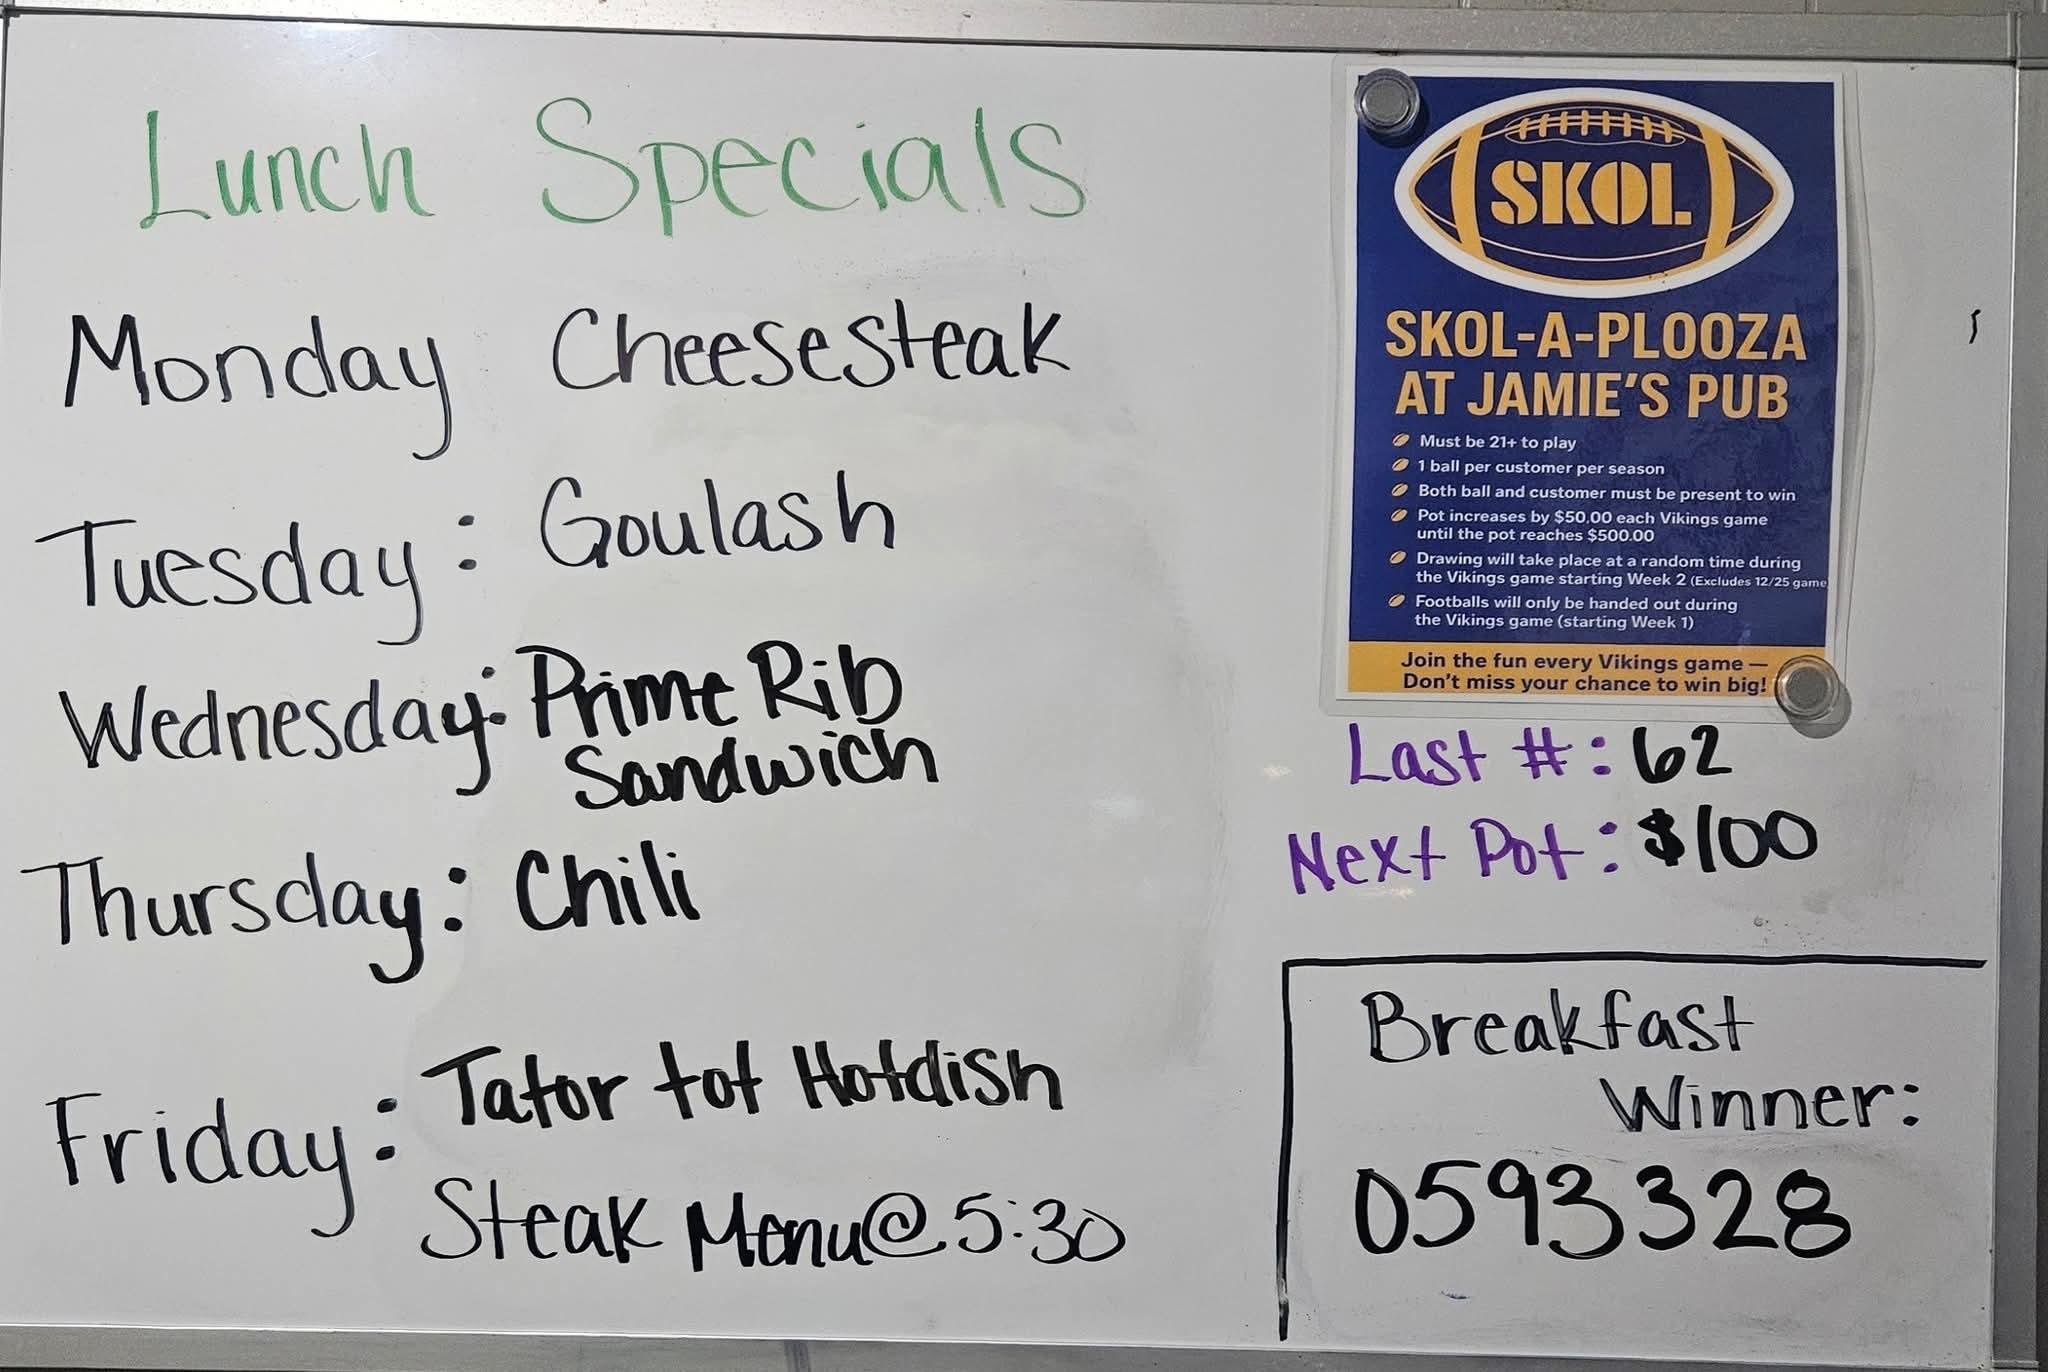 Lunch Specials
Monday Cheesesteak
Tuesday: Goulash
Wednesday: Prime Rib
Sandwich
Thursday: Chili
Friday: Tator tot Hotdish
Steak Menu@5:30
SKOL
SKOL-A-PLOOZA
AT JAMIE'S PUB
Must be 21+ to play
1 ball per customer per season
Both ball and customer must be present to win
Pot increases by $50.00 each Vikings game
until the pot reaches $500.00
Drawing will take place at a random time during
the Vikings game starting Week 2 (Excludes 12/25 game
Footballs will only be handed out during
the Vikings game (starting Week 1)
Join the fun every Vikings game —
Don't miss your chance to win big!
Last #: 62
Next Pot: $100
Breakfast
Winner:
0593328